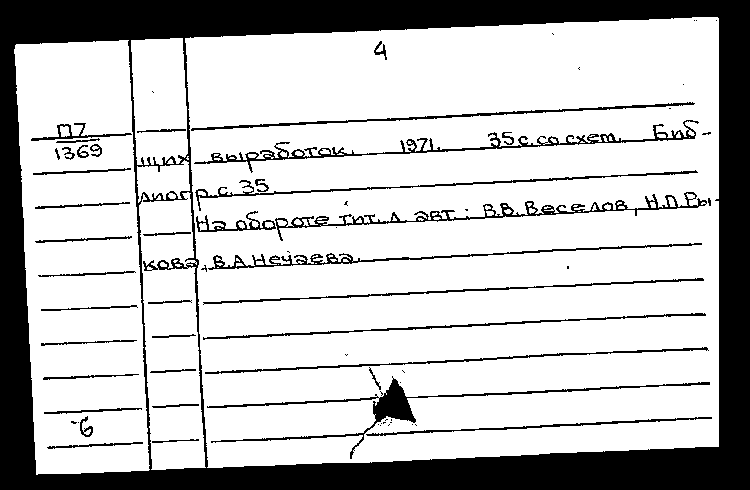 4
П7
1369
щих выработок. 1971. 35 с. со схем. Биб-
лиогр. с. 35
На обороте тит. л. авт.: В.В. Веселов, Н.П. Ры-
кова, В.А. Нечаева.
6